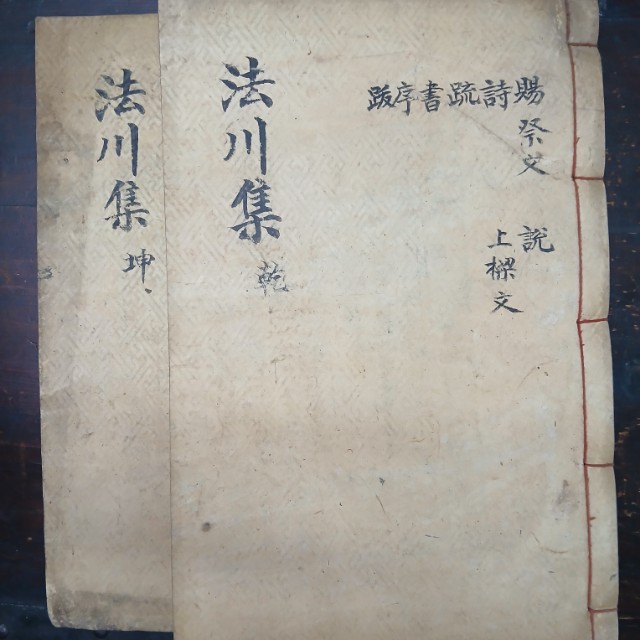 賜祭文
詩
疏
書
序
跋
說
上樑文
法川集 乾
法川集 坤